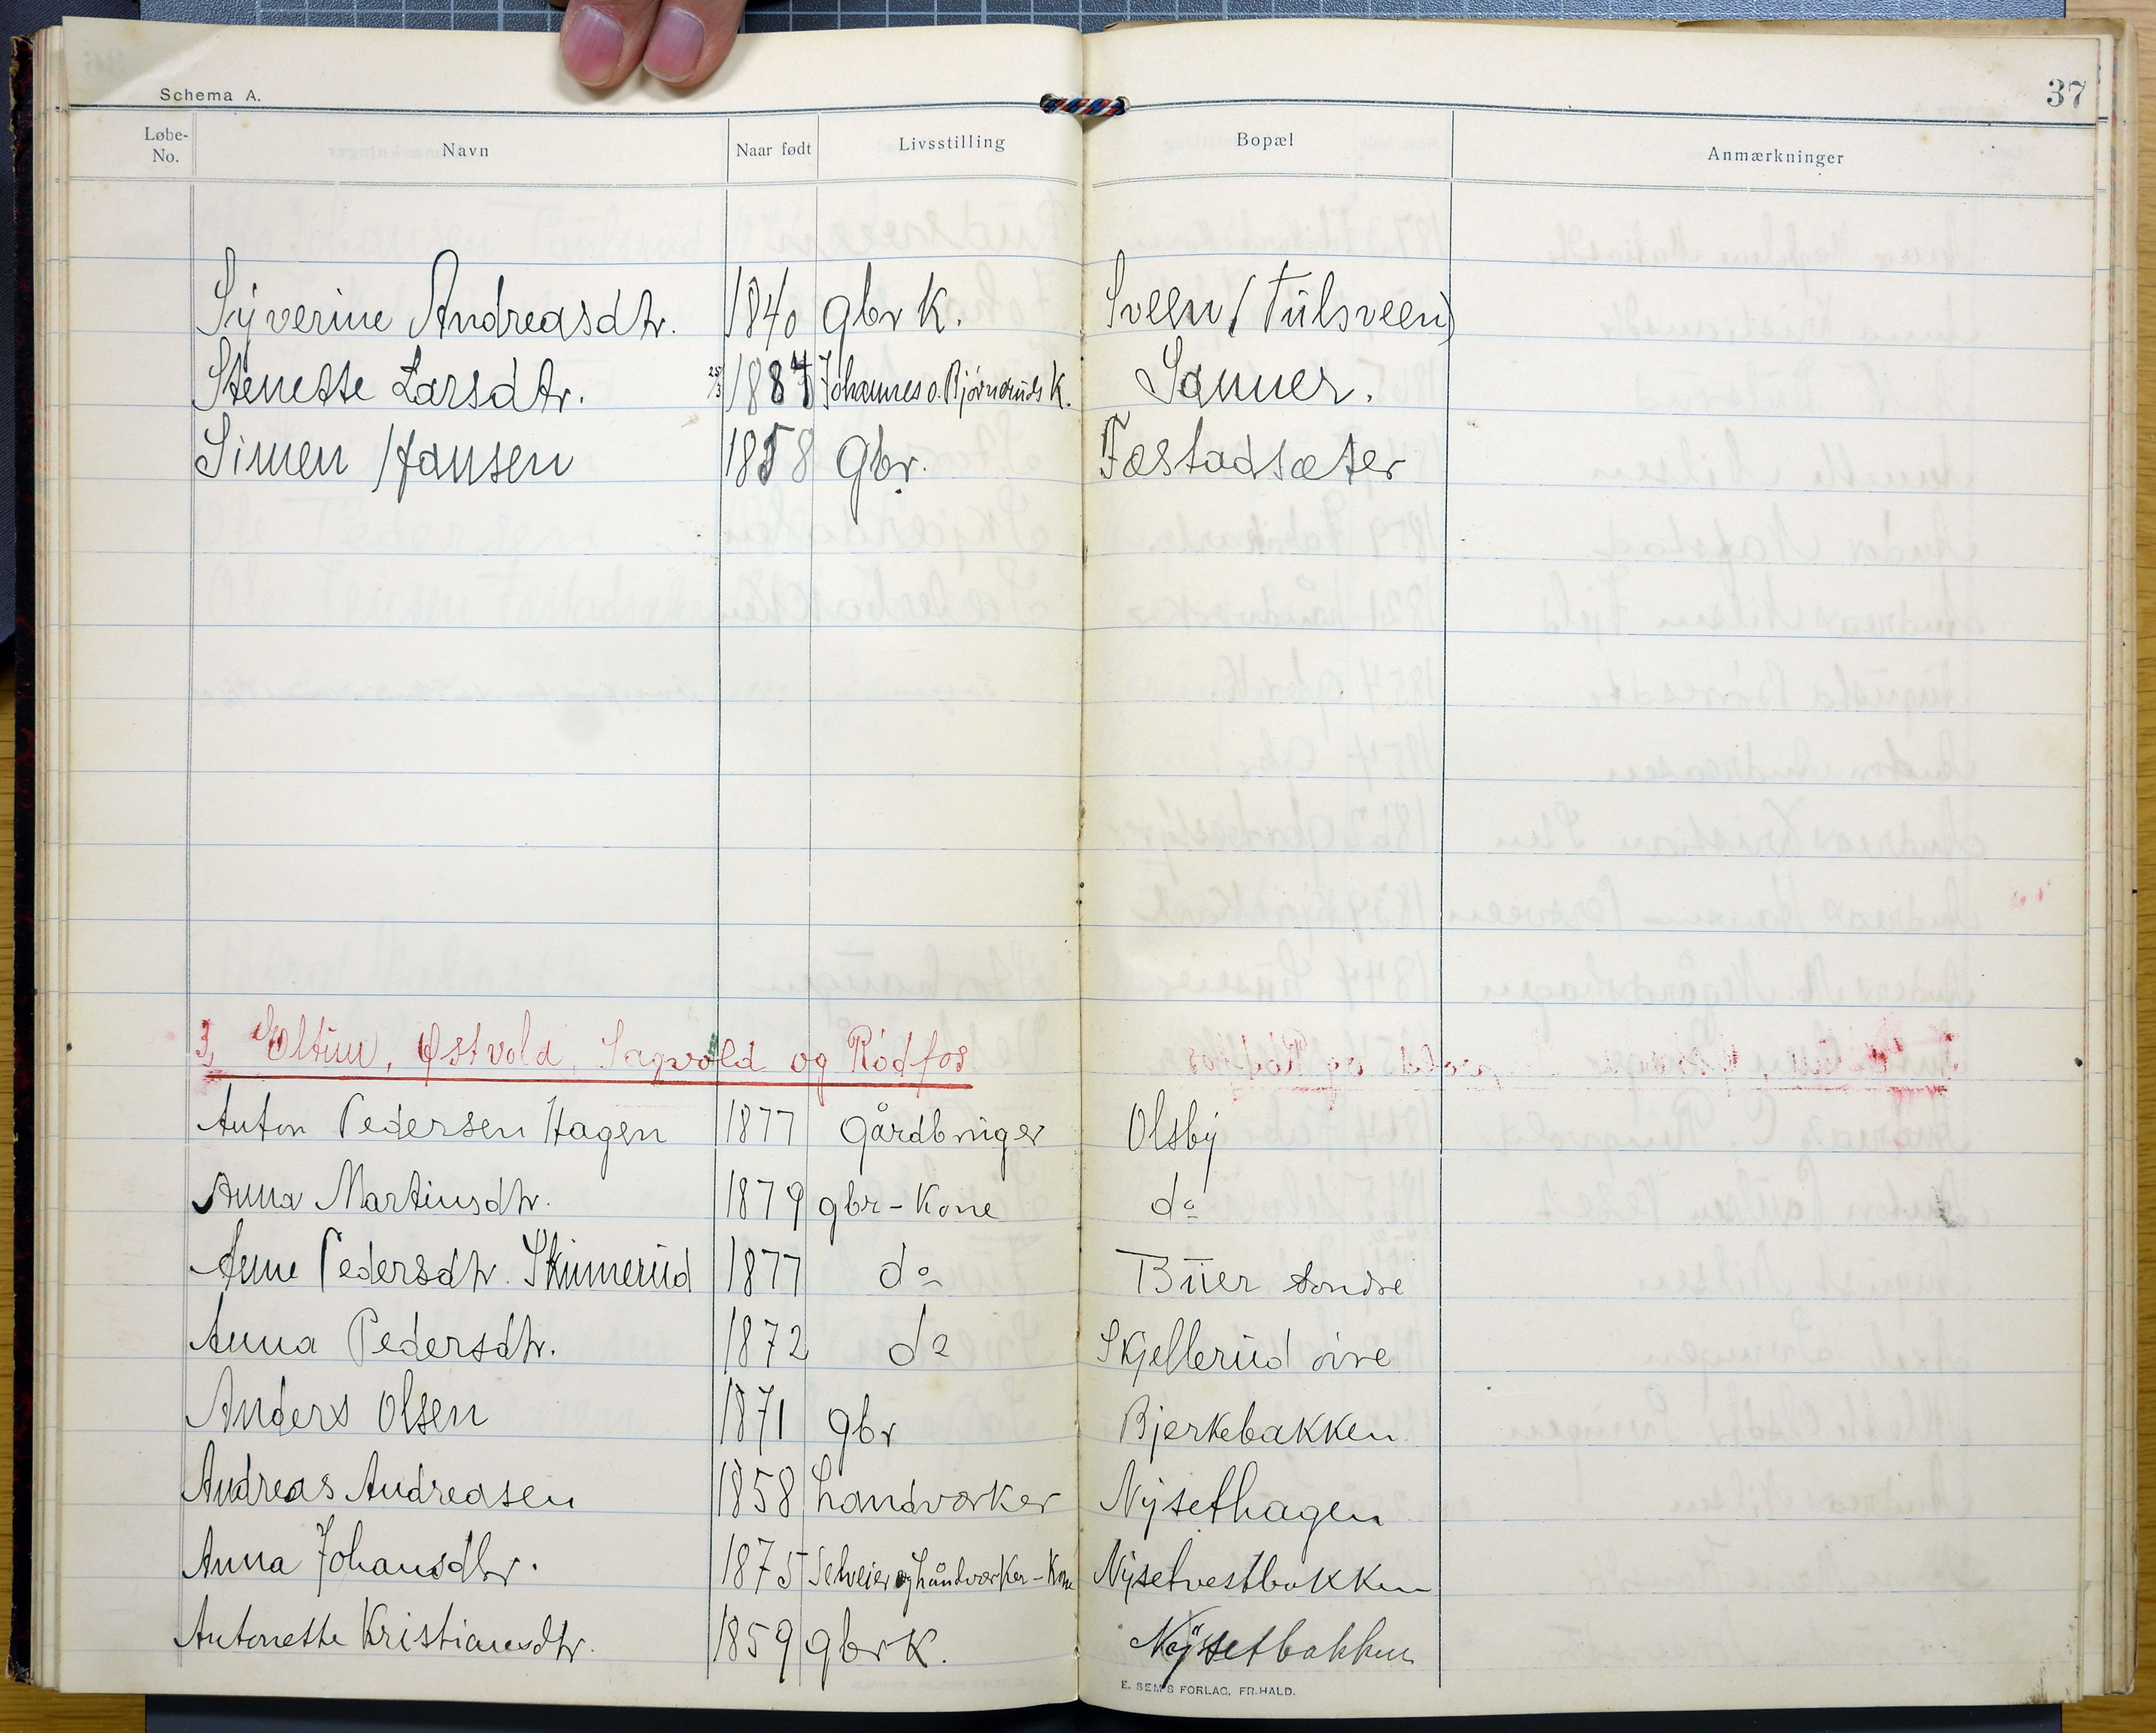 Schema A.
37
Løbe-No. Navn Naar født Livsstilling Bopæl Anmærkninger
Syverine Andreasdtr. 1840 gbr K. Sveen (Tulsveen)
Stenette Larsdtr. 25/3 1887 Johannes o. Bjørneruds K. Sanner.
Simen Hansen 1858 Gbr. Fæstadsæter
3, Eltun, Østvold, Sagvold og Rödfos
Anton Pedersen Hagen 1877 Gårdbruger Olsby
Anna Martinsdtr. 1879 gbr-Kone do
Anne Pedersdtr. Skinnerud 1877 do Buer söndre
Anna Pedersdtr. 1872 do Skjellerud övre
Anders Olsen 1871 gbr Bjerkebakken
Andreas Andreasen 1858 handværker Nysethagen
Anna Johansdtr. 1875 Selveier og håndværker-Kone Nysetvestbakken
Antonette Kristiansdtr. 1859 gbrk. Nysetbakken
E. SEM'S FORLAG, FR.HALD.